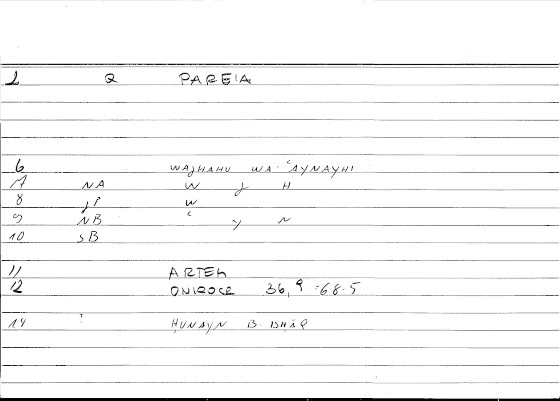 1 Q PAREIA
6 WAJHAHU WA-ʿAYNAYHI
7 NA W J H
8 JP W
9 NB ʿ Y N
10 SB
11 ARTEM
12 ONIROCR 36,9 :68.5
14 : ḤUNAYN B. ISḤĀQ